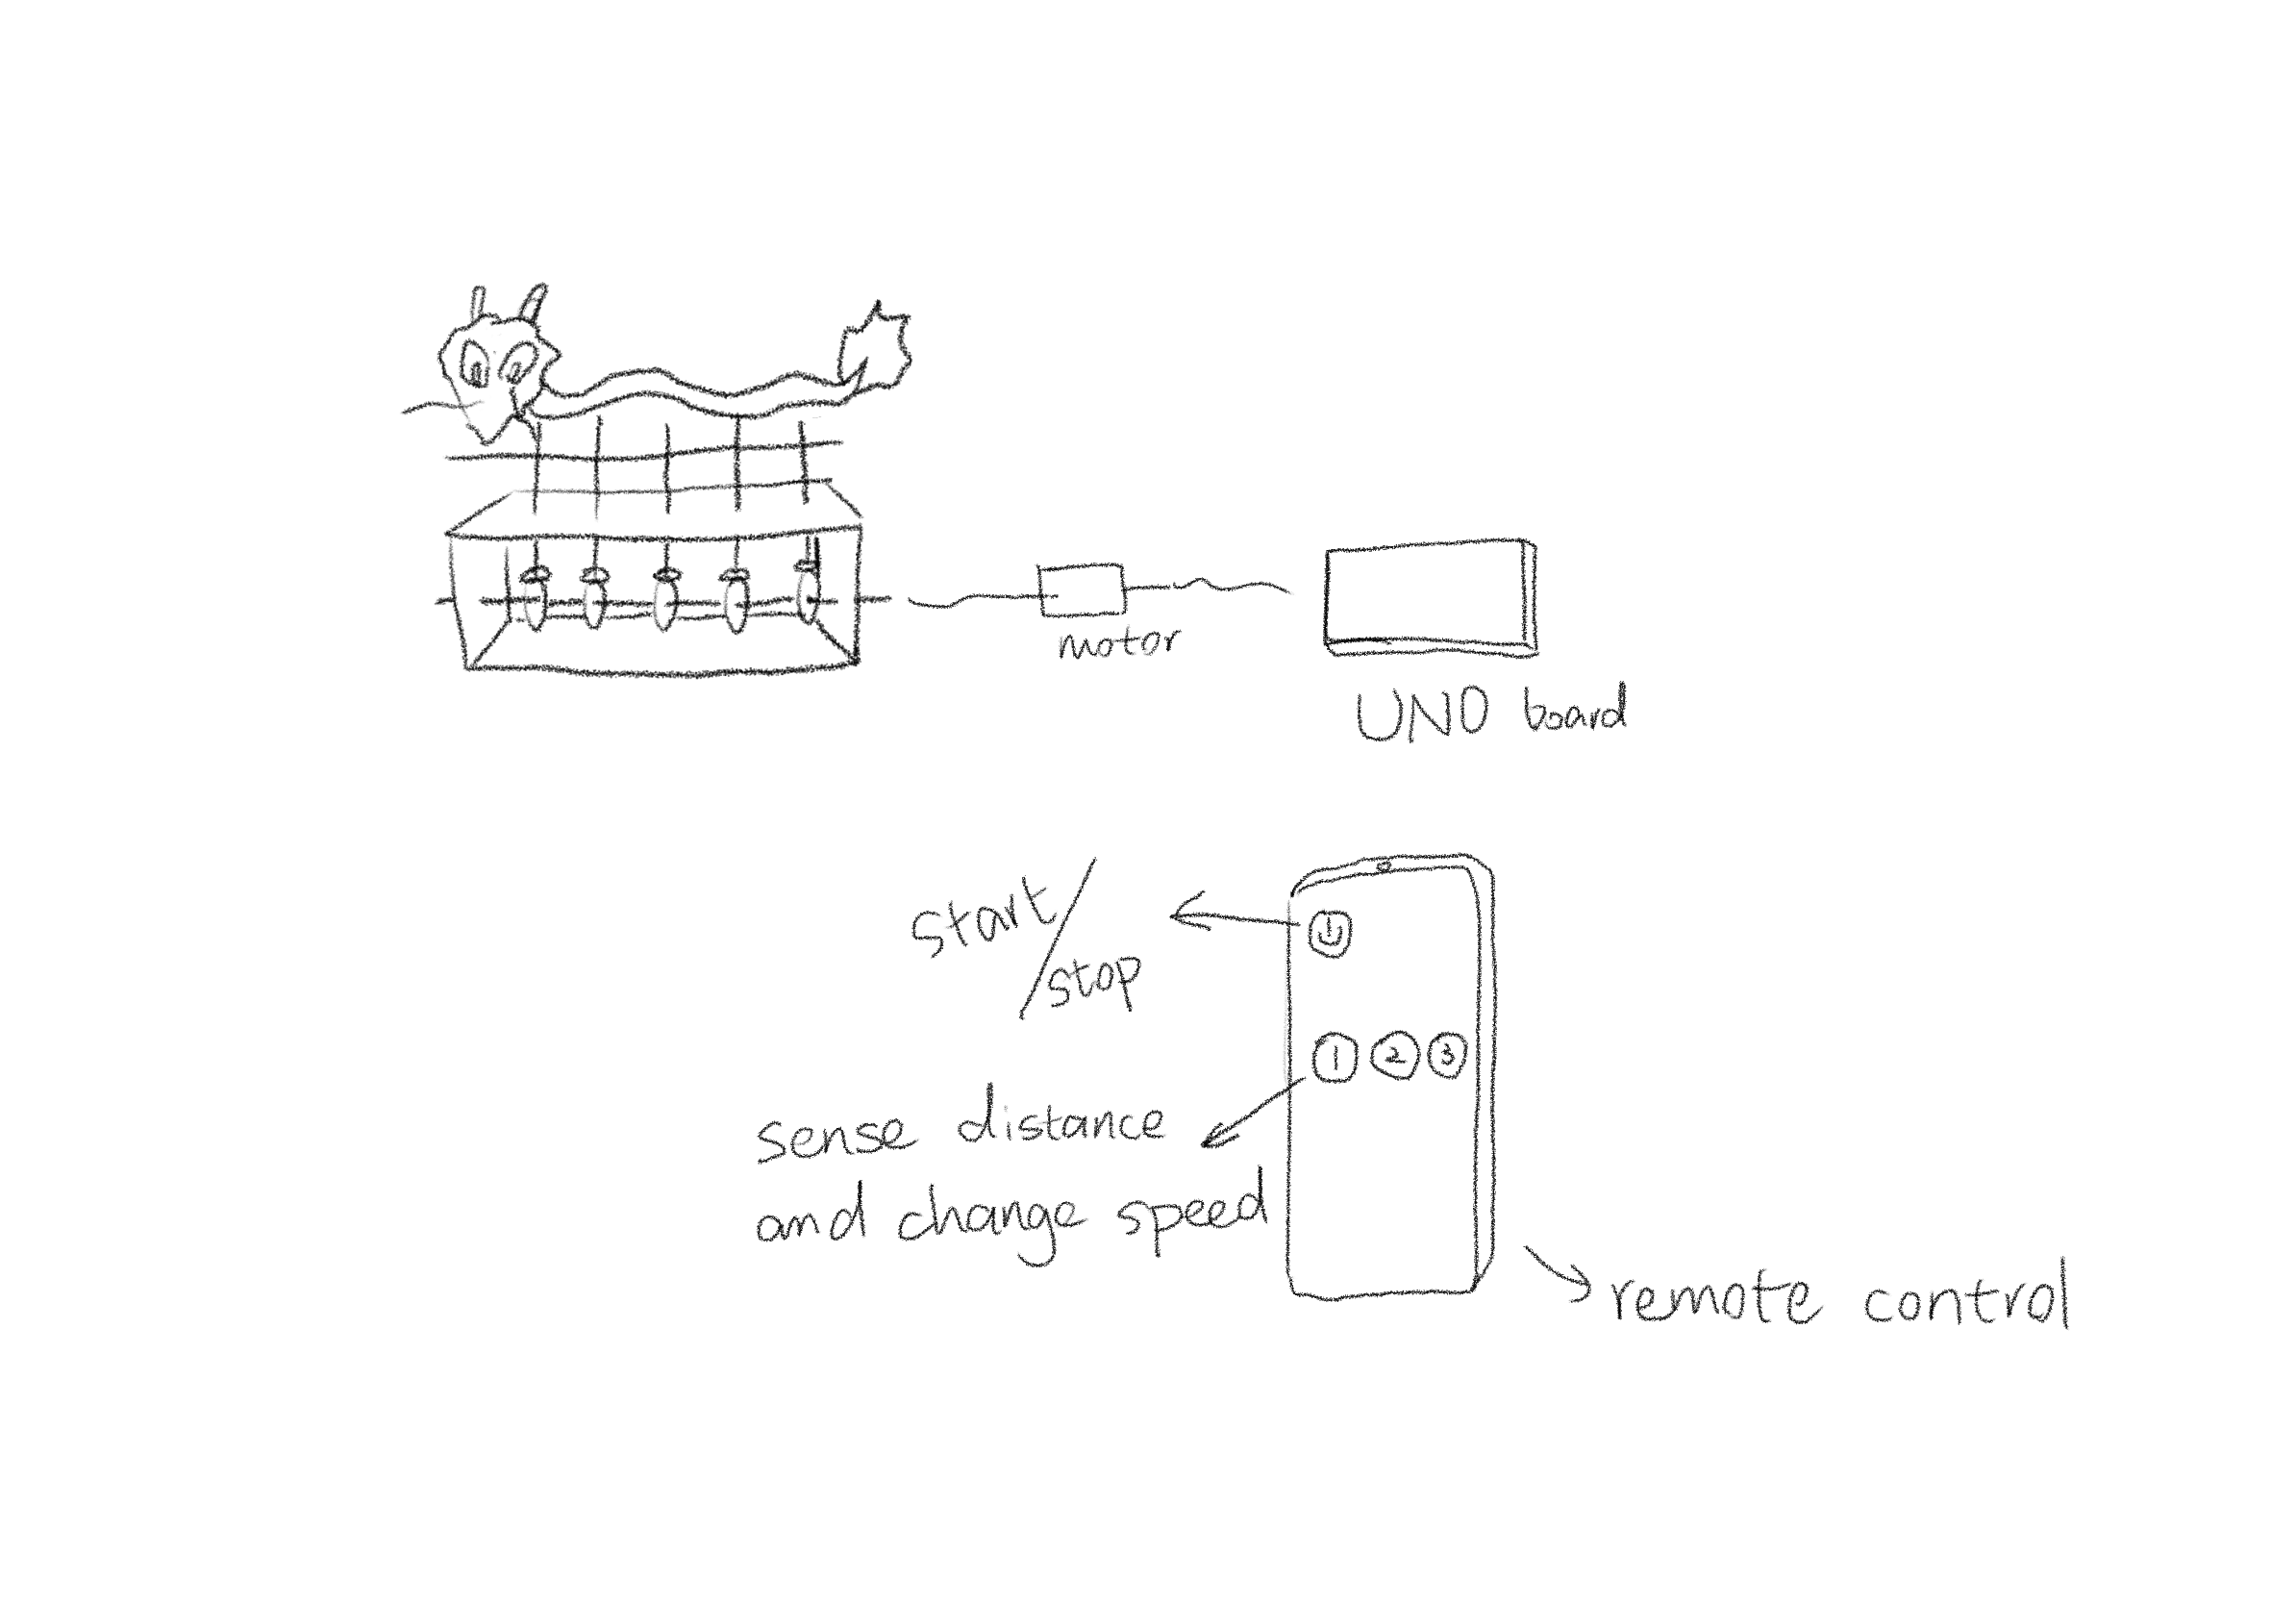 motor
UNO board
start/
stop
1 2 3
sense distance
and change speed
remote control